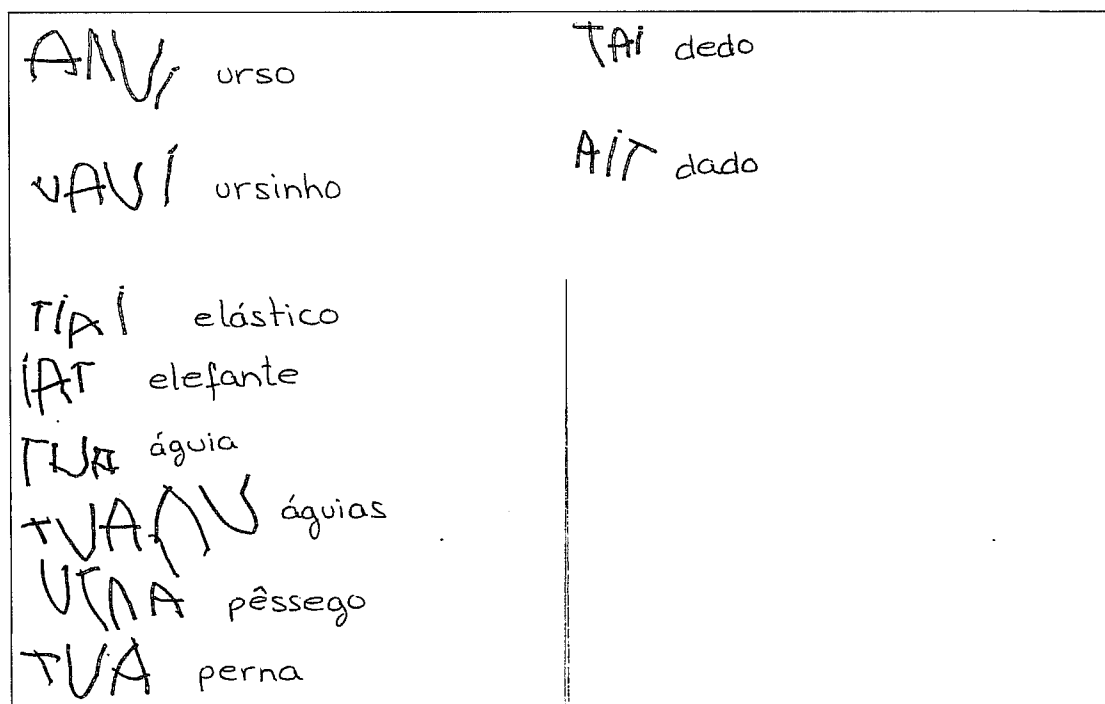 ANVi urso
VAVÍ ursinho
TiAi elástico
iAT elefante
TUA águia
TVANU águias
UTNA pêssego
TVA perna
TAi dedo
AiT dado